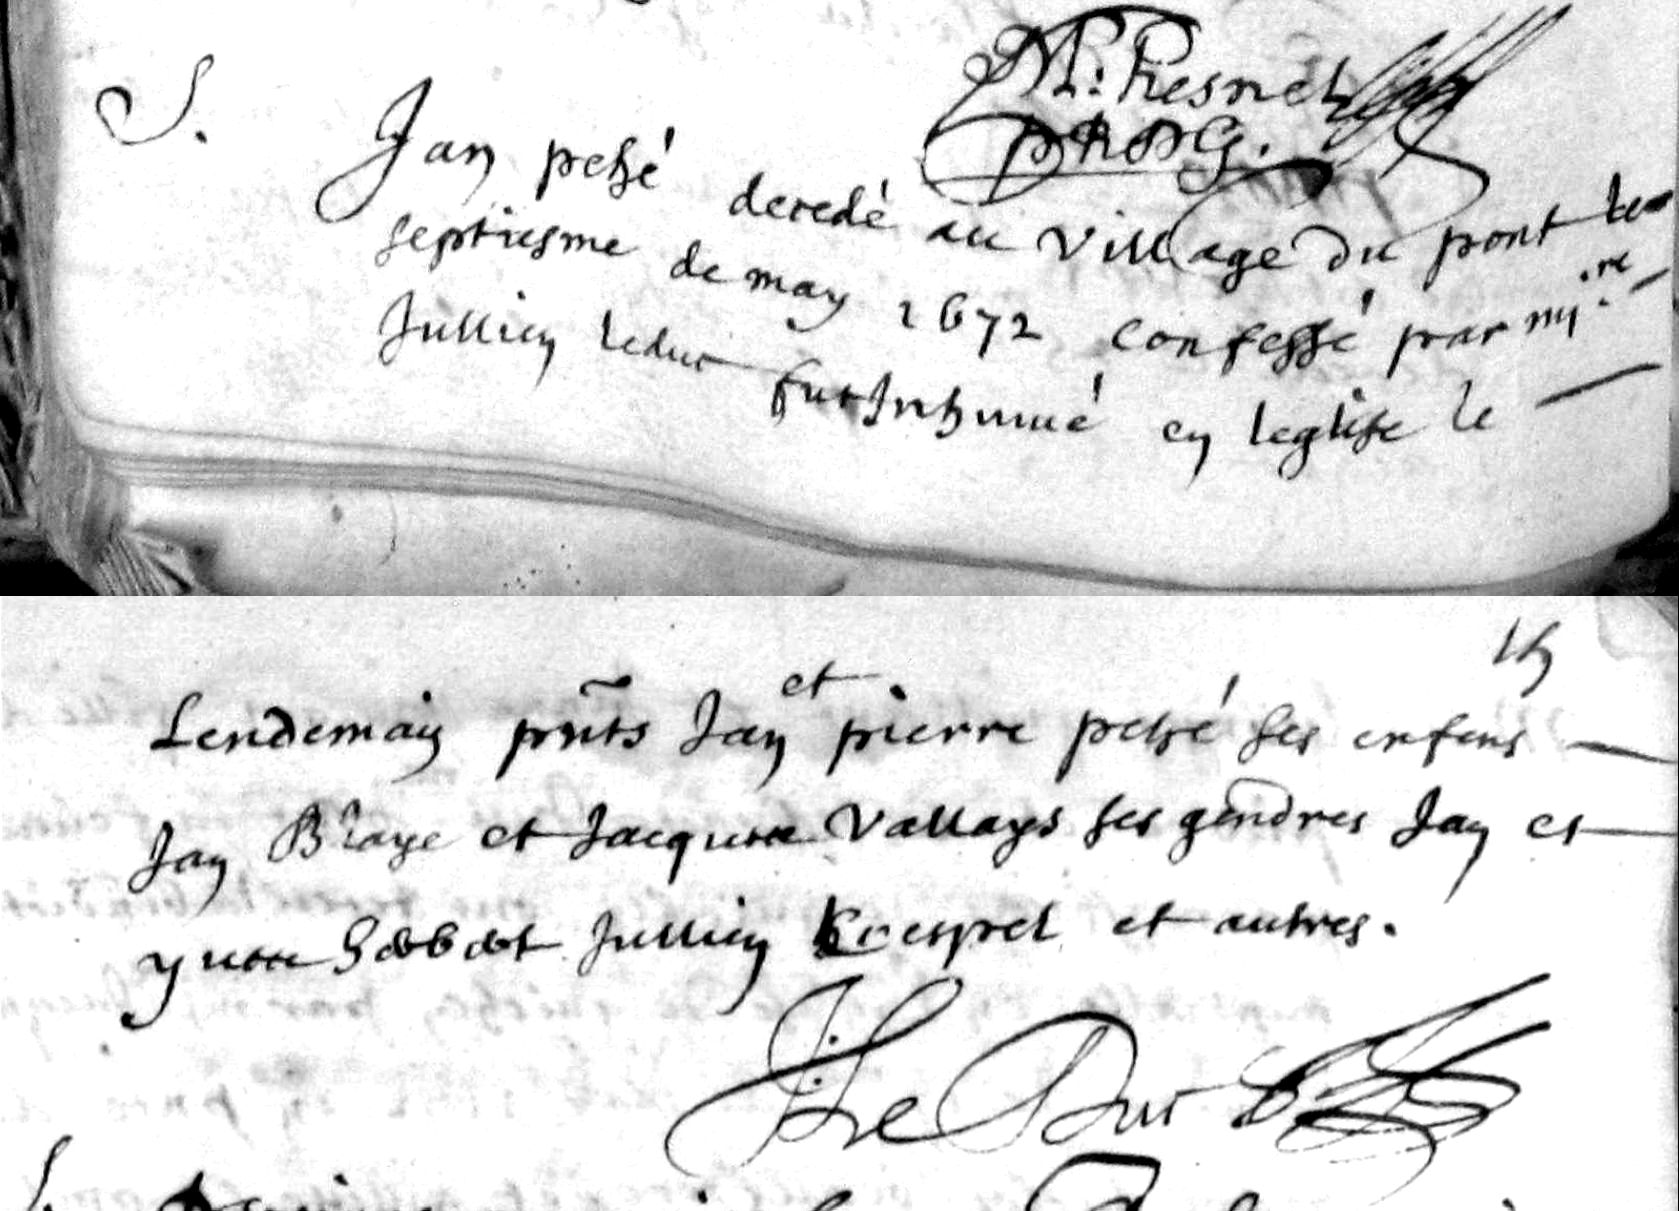 M: Presnel
S.
Jan peshé decedé au village du pont le
septiesme de may 1672 Confessé par mi.re
Jullien leduc fut Inhumé en leglise le
Lendemain pnts Jan et pierre peshé ses enfens
Jan Braye et Jacques Vallays ses gendres Jan et
yues Jullien Crespel et autres.
J: Le Duc